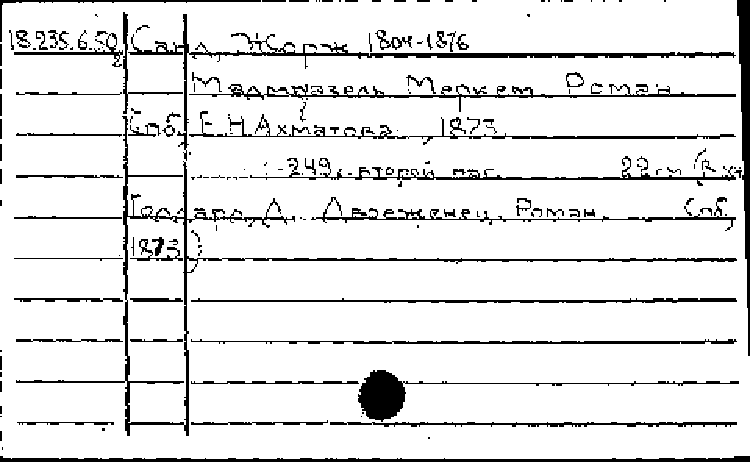 18.235.6.50 Санд, Жорж, 1804-1876
2
Мадмуазель Меркем. Роман.
Спб, Е.Н.Ахматова, 1873.
-249, второй паг. 22см (В кн
Годдард, Д. Двоеженец. Роман. Спб,
1873)